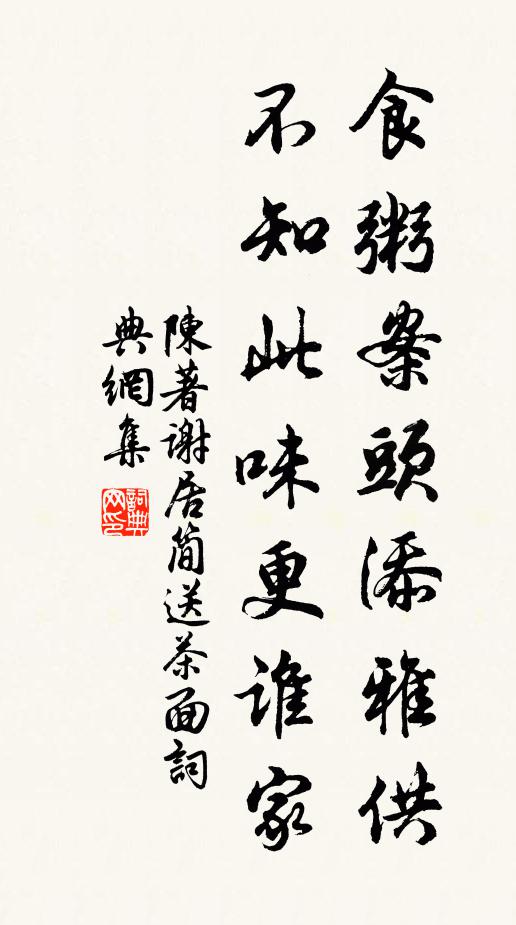 食粥案頭添雅供
不知此味更誰家
陳著謝居簡送茶面詞
典網集
詞典
网印